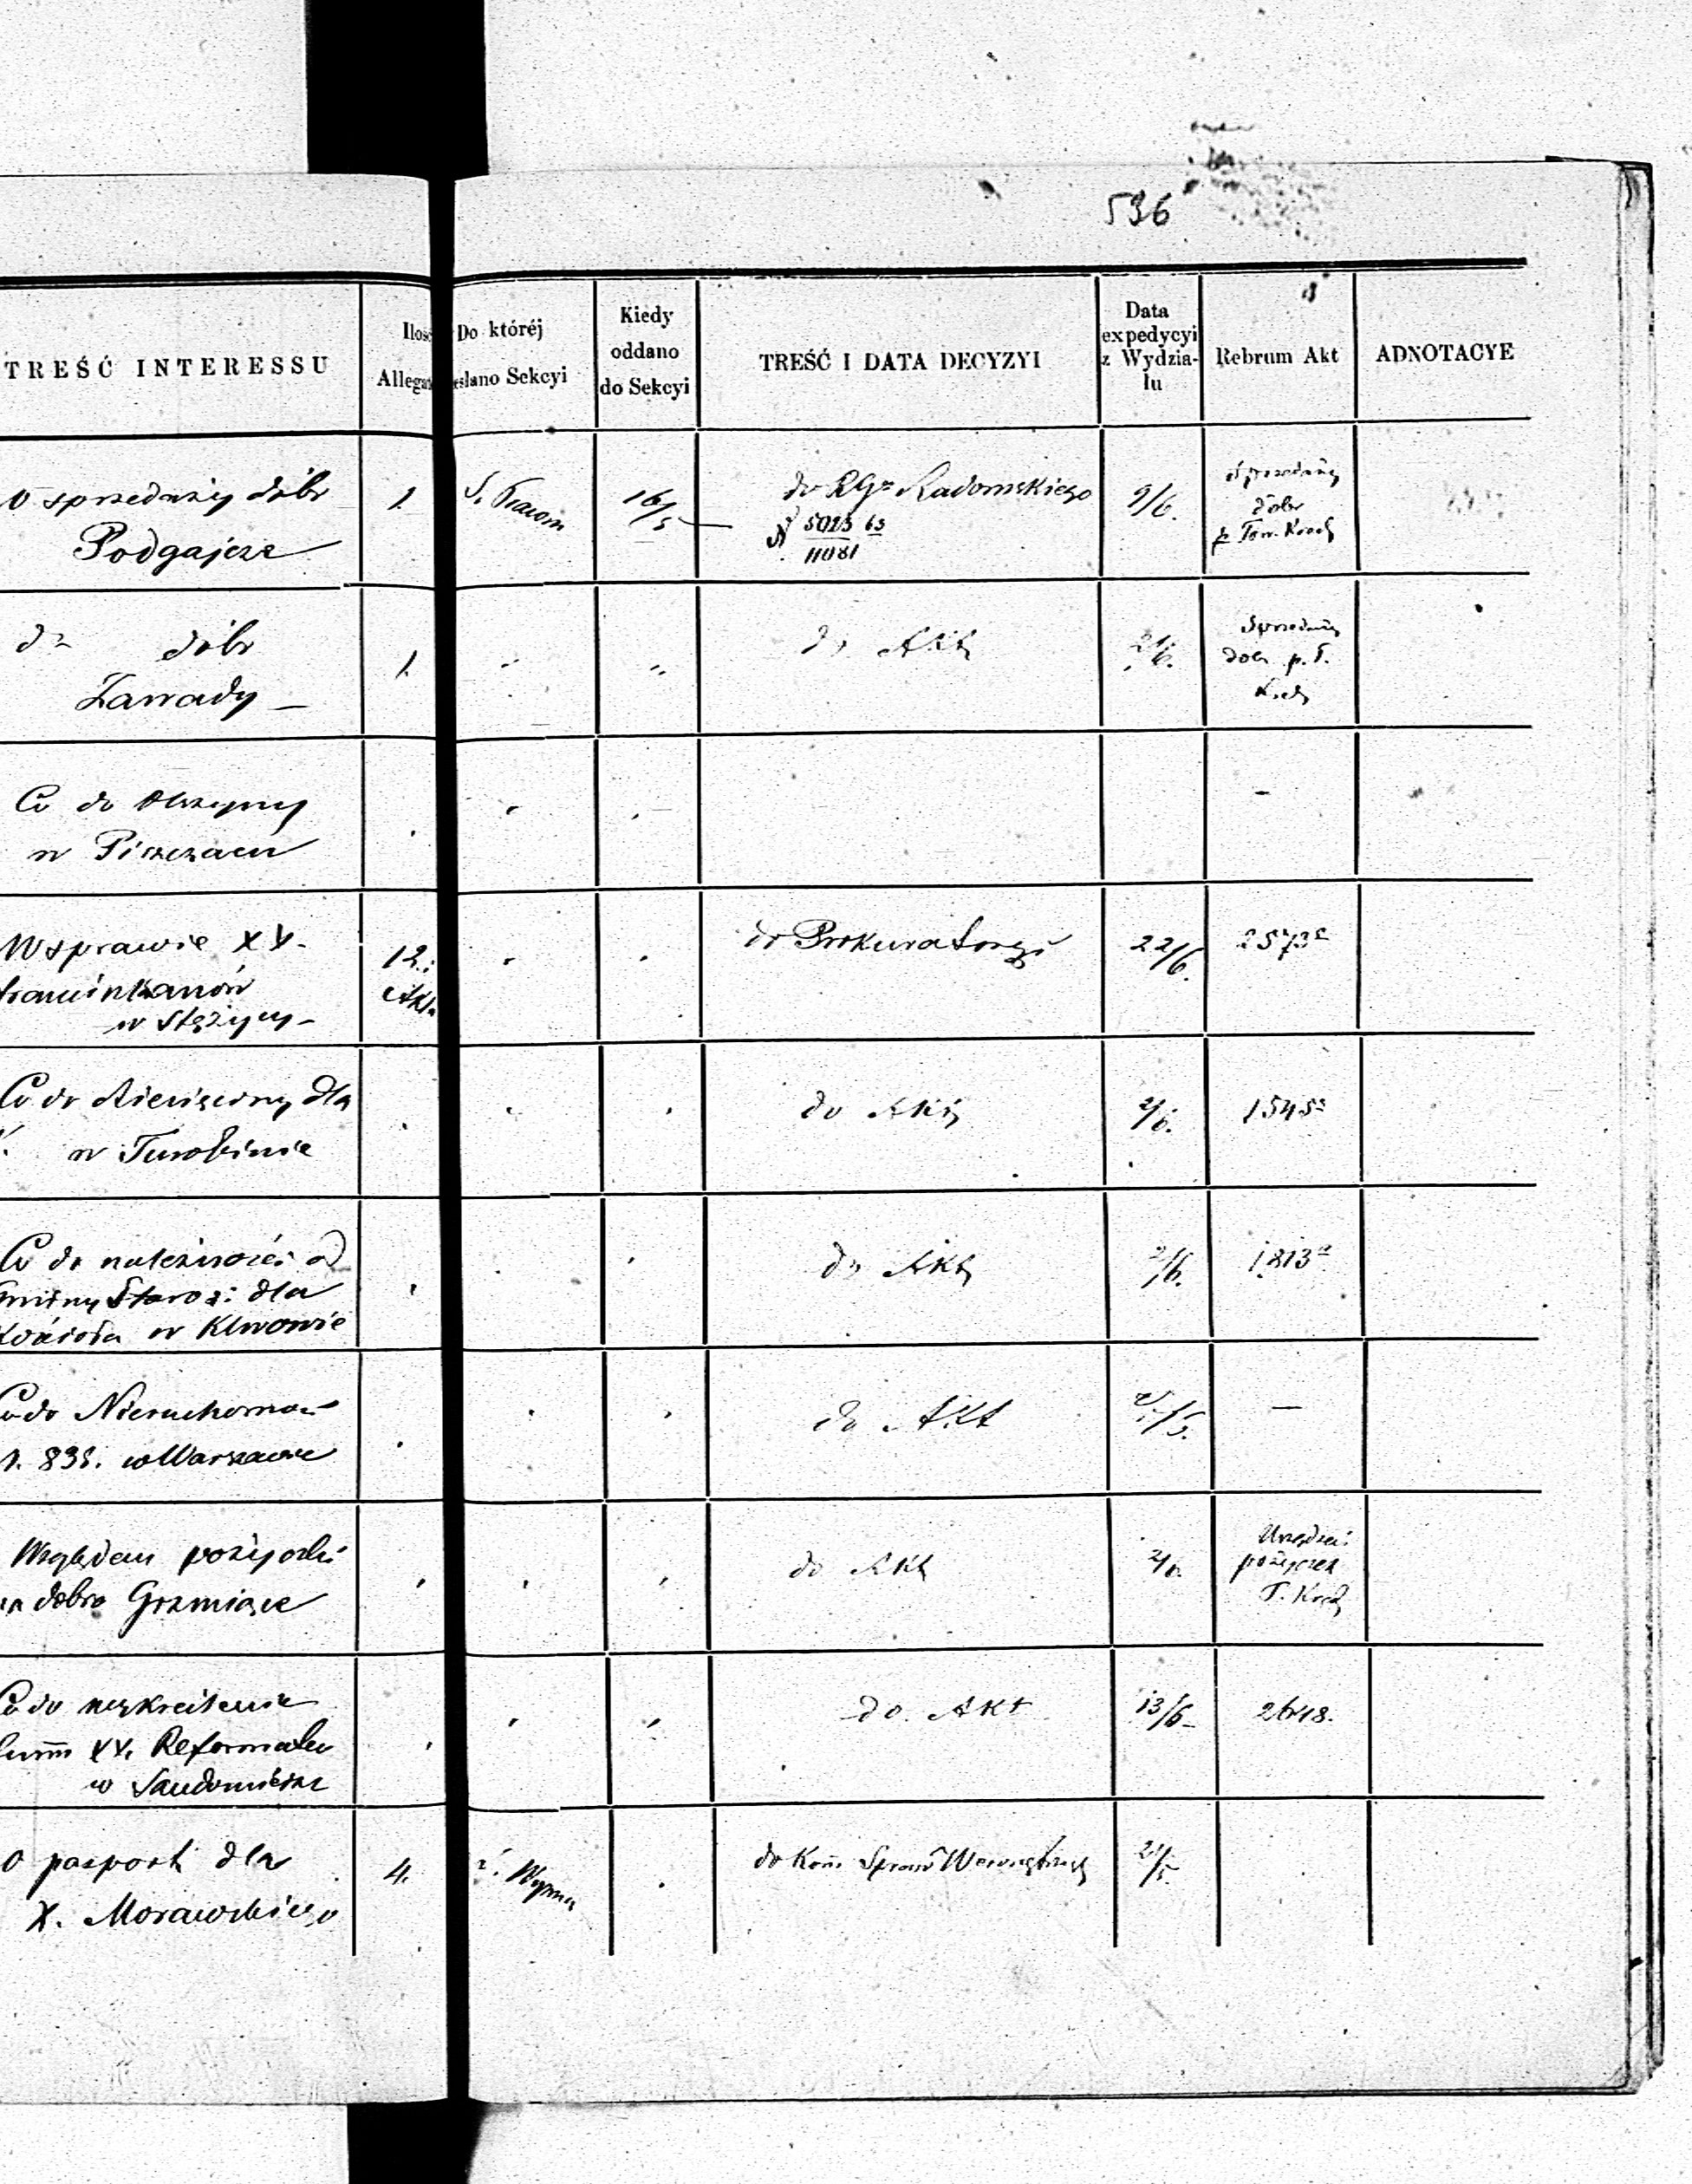 536
TREŚĆ INTERESSU
Ilość
Allega
Do któréj
esłano Sekcyi
Kiedy
oddano
do Sekcyi
TREŚĆ I DATA DECYZYI
Data
expedycyi
z Wydzia-
łu
Rebrum Akt
ADNOTACYE
O sprzedaży dóbr
Podgajcze
1.
16/5
do RGo Radomskiego
N 5025 63
11081
9/6.
Sprzedaży
dóbr
p Tow. Kred
do dóbr
Zawady
1.
do Akt
2/6.
Sprzedaży
dóbr p. T.
Kred
Co do Olszyny
w Piszczacu
-
W sprawie XX.
Franciszkanów
w Stężycy
12.
Akta
do Prokuratoryi
22/6.
2573a
Co do dziesięciny dla
w Turobinie
do Akt
2/6.
1545a
Co do należności od
gminy Staroz: dla
Kościoła w Klwowie
do Akt
2/6.
1813a
Co do Nieruchomoś
N. 838. w Warszawie
do Akt
/5.
—
Względem pożyczki
na dobra Grzmiące
do Akt
2/6.
Urządzei
pożyczek
T. Kred
Co do wykreślenia
summ XX. Reformatów
w Sandomierzu
do Akt
13/6
2648.
O pasport dla
X. Morawskiego
4.
do Kom Spraw Wewnętrznych
21/5.